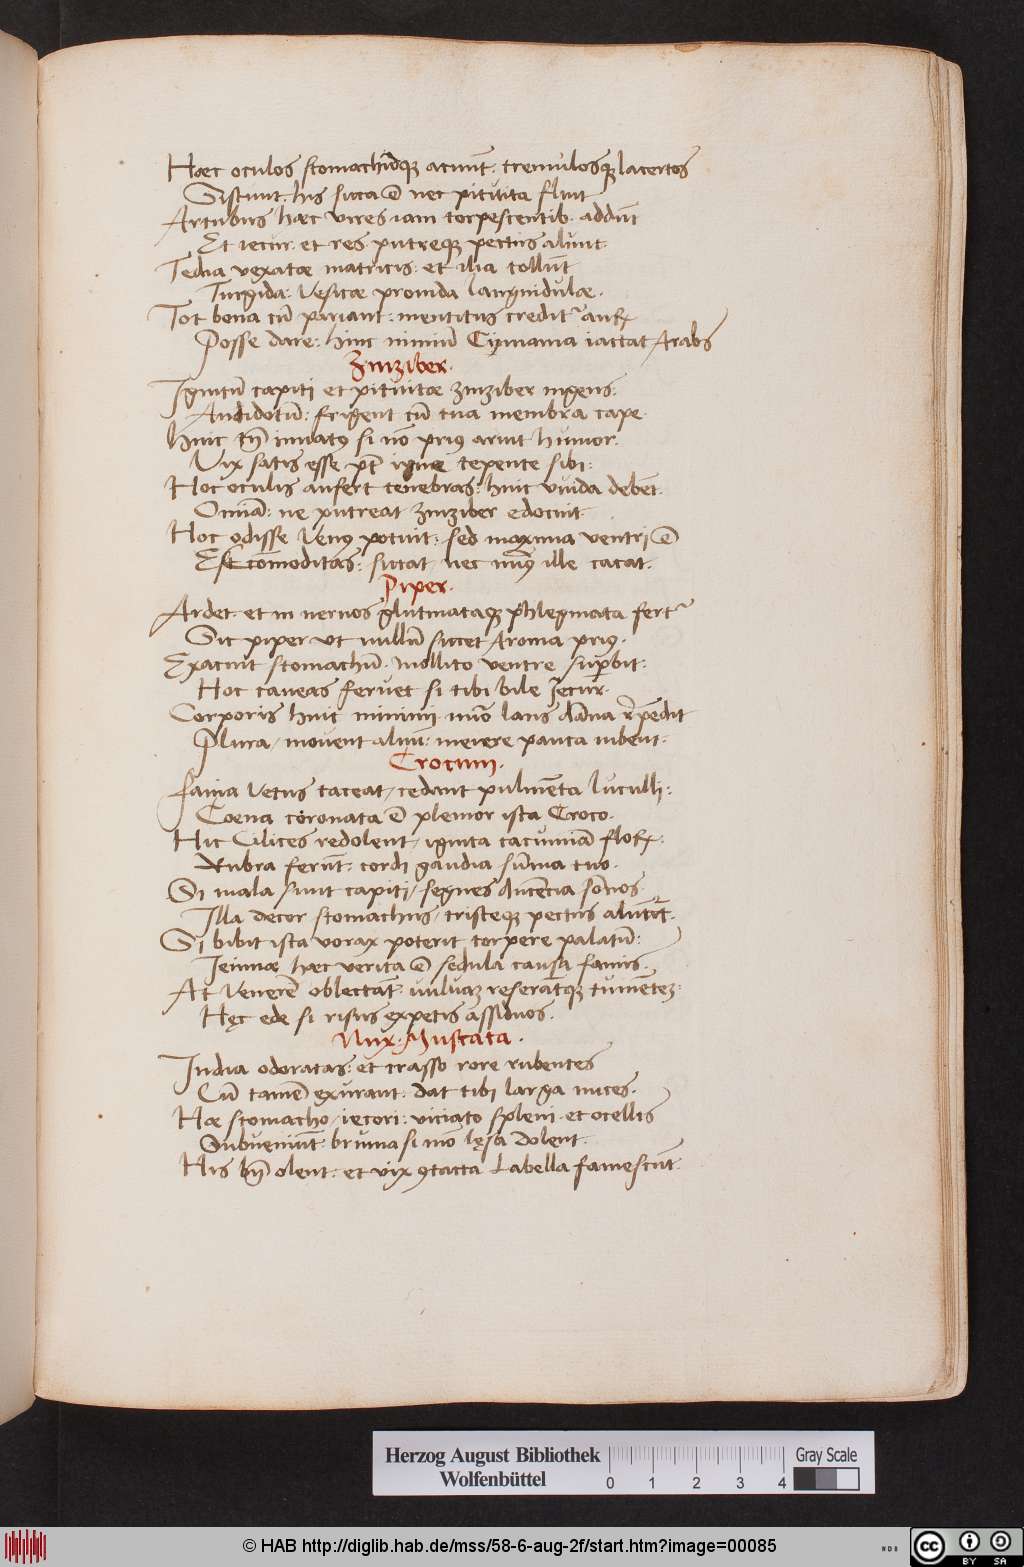 Haec oculos stomachūq₃ acuūt: tremulosq₃ lacertos
Sistunt. his sicca ē nec pituita fluit
Artubus haec vires iam torpescentib. addūt
Et iecur. et res. putreq₃ pectus alunt.
Tedia vexatae matricis: et ilia tollūt
Turgida: Vesicae prouida languidulae.
Tot bona cū pariant: mentitus credit᷑ auꝝ
Posse dare: hinc nimiū Cynnama iactat Arabs
Zinziber.
Ignitū capiti et pituitae zinziber ingens.
Antidotū: frigent cū tua membra cape.
huic tn̄ innatꝰ si nō priꝰ aruit humor.
Vix satis esse pt̄ igne tepente sibi:
Hoc oculis aufert tenebras: huic viuida debēt.
Omīa: ne putreat zinziber edocuit.
Hoc odisse Venꝰ potuit: sed maxima ventri ē
Est commoditas: siccat, nec ille cacat.
Piper.
Ardet. et in neruos glutinataq₃ phlegmata fert᷑
Sic piper vt nullū siccet Aroma priꝰ.
Exacuit stomachū. Mollito ventre supbit:
Hoc caueas feruet si tibi bile Iecur.
Corporis huic minimi laus dāna rēpēdit
Plura, mouent aluū: meiere pauca iubent:
Crocum.
Fama Vetus taceat, cedant pulmēta luculli:
Coena coronata ē plenior ista Croco.
Hic Cilices redolent, ignita cacumīa floꝝ:
Rubra ferūt: cordi gaudia sūma tuo.
Si mala sunt capiti, segnes ducētia sōnos.
Illa decor stomachus, tristeq₃ pectus alūt.
Si bibit ista vorax poterit torpere palatū:
Ieiunae haec verita ē sedula causa famis.
At Venerē oblectāt. reserātq₃
Hęc ede si risus expetis assiduos.
Nux. Muscata.
India odoratas: et crasso rore rubentes
Cū tamē exurant: dat tibi larga nuces.
Hae stomacho, iecori: viciato spleni. et ocellis
Subueniūt: bruma si lęsa dolent.
His bn̄ olent: et vix ꝯtacta Labella famescūt.
Herzog August Bibliothek
Wolfenbüttel
0 1 2 3 4
Gray Scale
© HAB http://diglib.hab.de/mss/58-6-aug-2f/start.htm?image=00085
cc BY SA